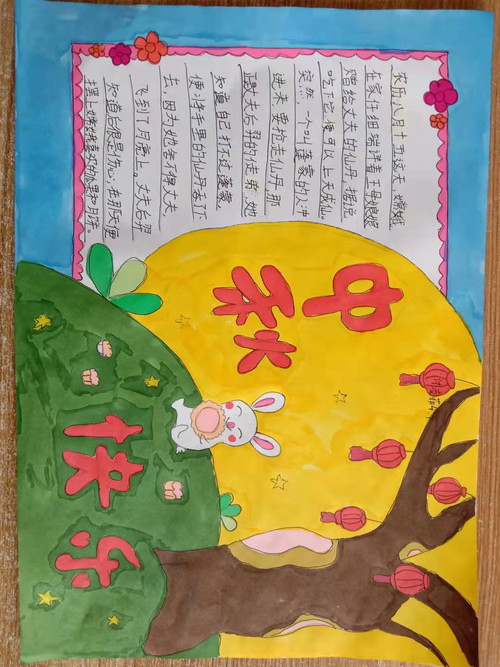 农历八月十五这天,嫦娥
在家仔细端详着王母娘娘
赠给丈夫的仙丹,据说
吃了它便可以上天成仙。
突然,一个叫蓬蒙的人冲
进来,要抢走仙丹,那
是丈夫后羿的徒弟,她
知道自己打不过蓬蒙
便将手里的仙丹吞了下
去,因为她舍不得丈夫,
飞到了月亮上。丈夫后羿
知道后很是伤心,在那天便
摆上嫦娥喜欢的瓜果和月饼。
中秋
快乐